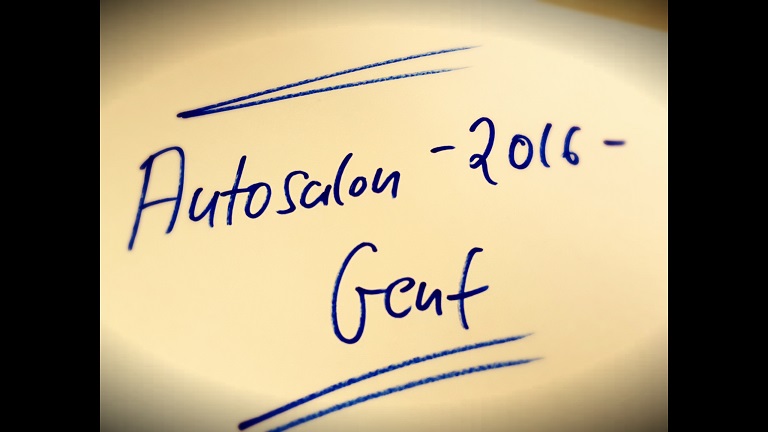 Autosalon - 2016 -
Genf